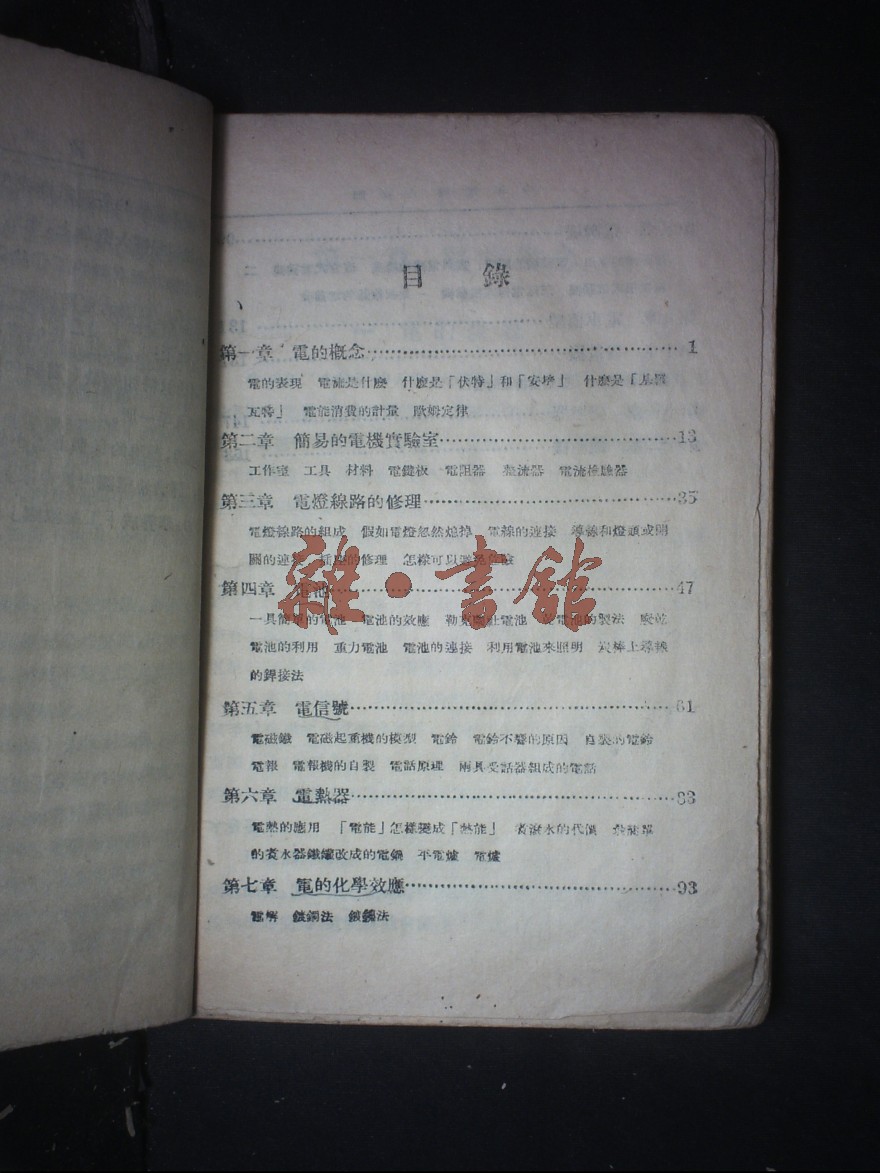 目 錄
第一章 電的概念……1
電的表現 電流是什麼 什麼是「伏特」和「安培」 什麼是「基羅
瓦特」 電能消費的計量 歐姆定律
第二章 簡易的電機實驗室……13
工作室 工具 材料 電鍵板 電阻器 整流器 電流檢驗器
第三章 電燈線路的修理……35
電燈線路的組成 假如電燈忽然熄掉 電線的連接 導線和燈頭或開
關的連接 插座的修理 怎樣可以避免危險
第四章 電池……47
一具簡單的電池 電池的效應 電池 乾電池的製法 廢乾
電池的利用 重力電池 電池的連接 利用電池來照明 炭棒上導線
的銲接法
第五章 電信號……61
電磁鐵 電磁起重機的模型 電鈴 電鈴不響的原因 自製的電鈴
電報 電報機的自製 電話原理 兩具受話器組成的電話
第六章 電熱器……83
電熱的應用 「電能」怎樣變成「熱能」 煮滾水的代價 最簡單
的煮水器 鐵罐改成的電鍋 平電爐 電爐
第七章 電的化學效應……93
電解 鍍銅法 鍍鎳法
雜·書館